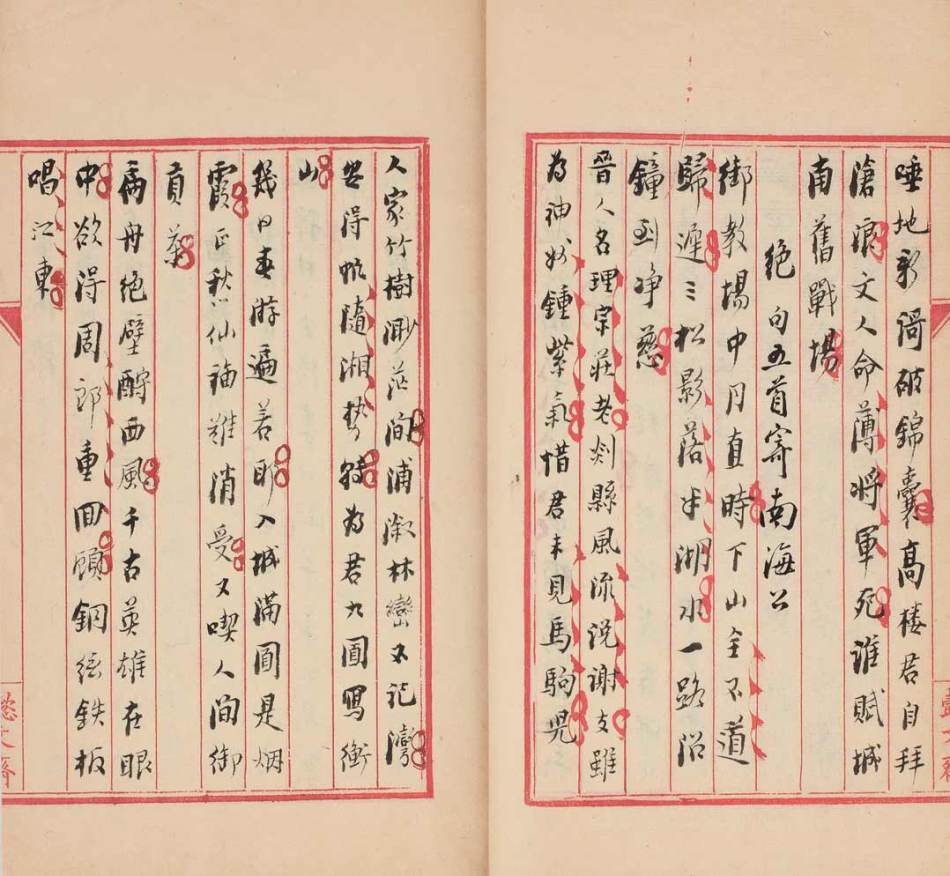 唾地新破錦囊高樓君自拜
滄浪文人命薄將軍死誰賦城
南舊戰場
絕句五首寄南海公
御教場中月直時下山全不道
歸遲三松影落半湖水一路沿
鐘到淨慈
晉人名理宗莊老剡縣風流說謝支雖
為神州鍾紫氣惜君未見馬駒兒
人家竹樹渺茫間浦漵林巒不記灣
安得帆隨湘勢轉為君九面寫衡
山
幾日春游遍若耶入城滿面是烟
霞正愁仙福難消受又喫人間御
貢茶
扁舟絕壁酹西風千古英雄在眼
中欲得周郎重回顧銅絃鉄板
唱江東
懿文齋